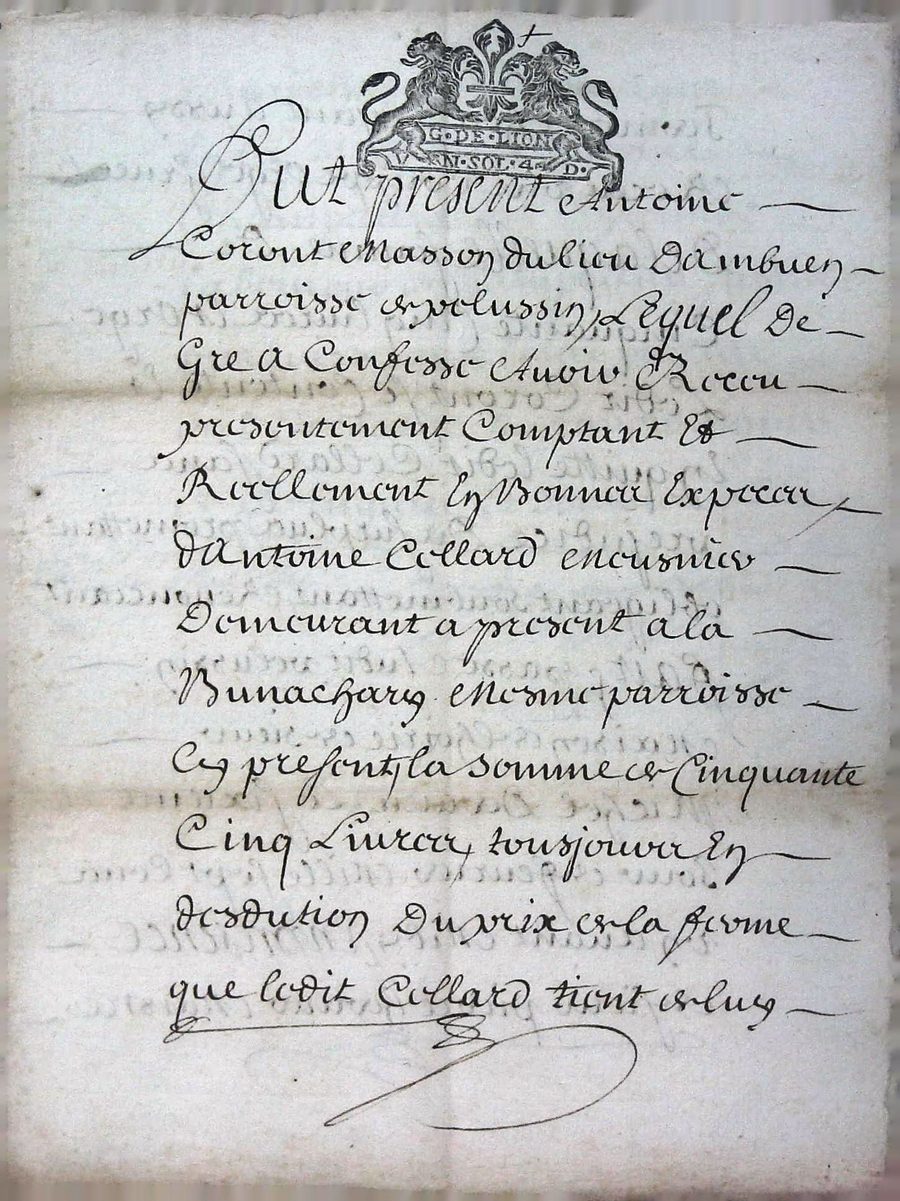 G·DE·LION
VN·SOL·4·D·
Fut present Antoine
Coront Masson du lieu Dambuen
parroisse de pelussin, Lequel De
Gre a Confesse Avoir Receu
presentement Comptant Et
Reellement En Bonnes Expeces
dAntoine Cellard Meusnier
Demeurant a present a la
Bunachary Mesme parroisse
Cy present, la somme de Cinquante
Cinq Livres, tousjours En
desdution Du prix de la ferme
que ledit Cellard tient de luy